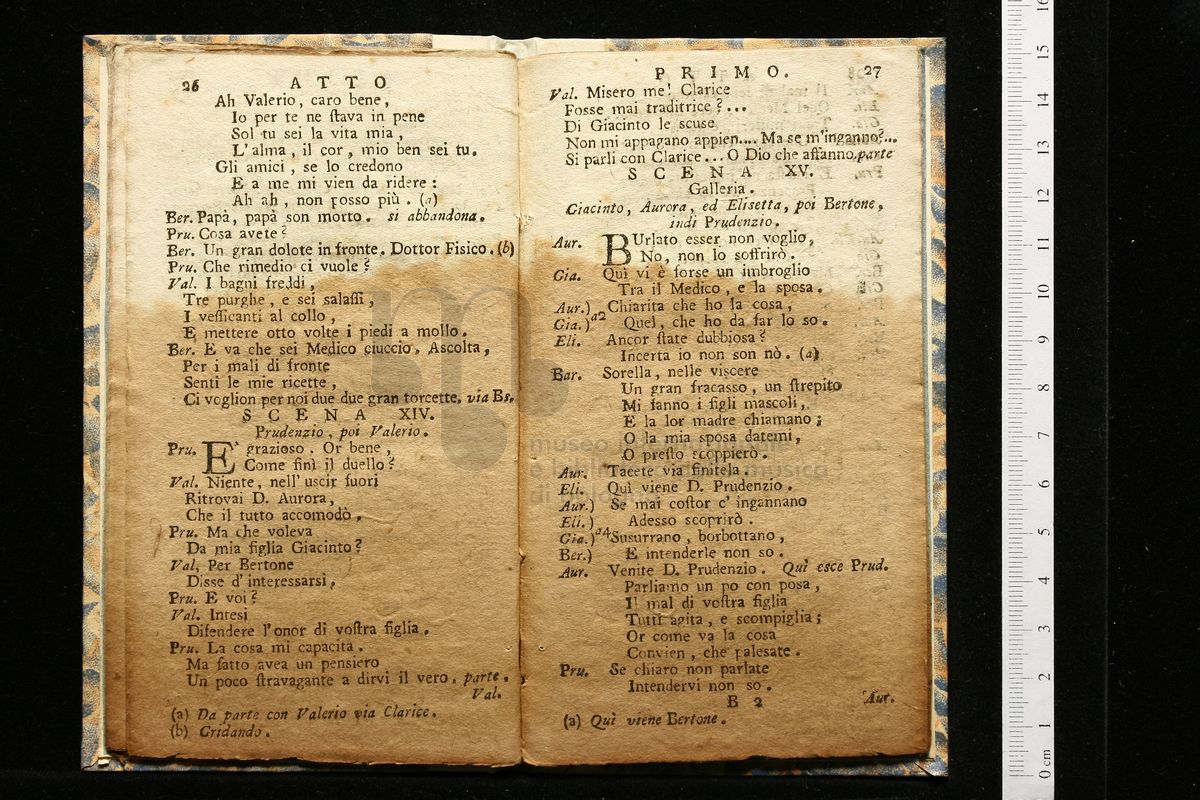 26 ATTO
Ah Valerio, caro bene,
Io per te ne ſtava in pene
Sol tu sei la vita mia,
L'alma, il cor, mio ben sei tu.
Gli amici, se lo credono
E a me mi vien da ridere:
Ah ah, non posso più. (a)
Ber. Papà, papà son morto. si abbandona.
Pru. Cosa avete?
Ber. Un gran dolote in fronte. Dottor Fisico. (b)
Pru. Che rimedio ci vuole?
Val. I bagni freddi,
Tre purghe, e sei salaſſi,
I veſſicanti al collo,
E mettere otto volte i piedi a mollo.
Ber. E va che sei Medico ciuccio. Ascolta,
Per i mali di fronte
Senti le mie ricette,
Ci voglion per noi due due gran torcette. via Bs.
SCENA XIV.
Prudenzio, poi Valerio.
Pru. E' grazioso. Or bene,
Come finì il duello?
Val. Niente, nell'uscir fuori
Ritrovai D. Aurora,
Che il tutto accomodò.
Pru. Ma che voleva
Da mia figlia Giacinto?
Val. Per Bertone
Disse d'interessarsi,
Pru. E voi?
Val. Intesi
Difendere l'onor di voſtra figlia.
Pru. La cosa mi capacita.
Ma fatto avea un pensiero
Un poco ſtravagante a dirvi il vero. parte.
Val.
(a) Da parte con Valerio via Clarice.
(b) Gridando.
PRIMO. 27
Val. Misero me! Clarice
Fosse mai traditrice?...
Di Giacinto le scuse
Non mi appagano appien.... Ma se m'inganno?...
Si parli con Clarice... O Dio che affanno. parte
SCENA XV.
Galleria.
Giacinto, Aurora, ed Elisetta, poi Bertone,
indi Prudenzio.
Aur. BUrlato esser non voglio,
No, non lo soffrirò.
Gia. Quì vi è forse un imbroglio
Tra il Medico, e la sposa.
Aur.) a2 Chiarita che ho la cosa,
Gia.) Quel, che ho da far lo so.
Eli. Ancor ſtate dubbiosa?
Incerta io non son nò. (a)
Bar. Sorella, nelle viscere
Un gran fracasso, un ſtrepito
Mi fanno i figli mascoli,
E la lor madre chiamano;
O la mia sposa datemi,
O preſto scoppierò.
Aur. Tacete via finitela.
Eli. Quì viene D. Prudenzio.
Aur.) Se mai coſtor c'ingannano
Eli.) Adesso scoprirò.
Gia.) a4 Susurrano, borbottano,
Ber.) E intenderle non so.
Aur. Venite D. Prudenzio. Quì esce Prud.
Parliamo un po con posa,
Il mal di voſtra figlia
Tutti agita, e scompiglia;
Or come va la cosa
Convien, che palesate.
Pru. Se chiaro non parlate
Intendervi non so.
B 2 Aur.
(a) Quì viene Bertone.